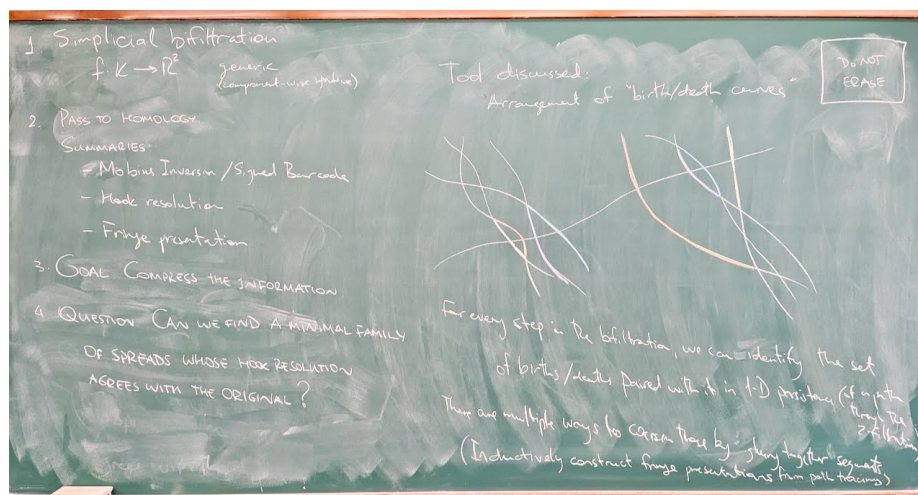 1 Simplicial bifiltration
f K → R² generic
(component-wise
2. PASS TO HOMOLOGY.
SUMMARIES:
- Möbius Inversion / Signed Barcode
- Hook resolution
- Fringe presentation
3. GOAL COMPRESS THE INFORMATION
4 QUESTION CAN WE FIND A MINIMAL FAMILY
OF SPREADS WHOSE HOOK RESOLUTION
AGREES WITH THE ORIGINAL?
Tool discussed:
Arrangement of "birth/death curves"
DO NOT
ERASE
For every step in the bifiltration, we can identify the set
of births/deaths paired with it in 1-D persistence (of a path
through the
2-filtration
There are multiple ways to them by gluing together segments
(Inductively construct fringe presentations from path tracing)